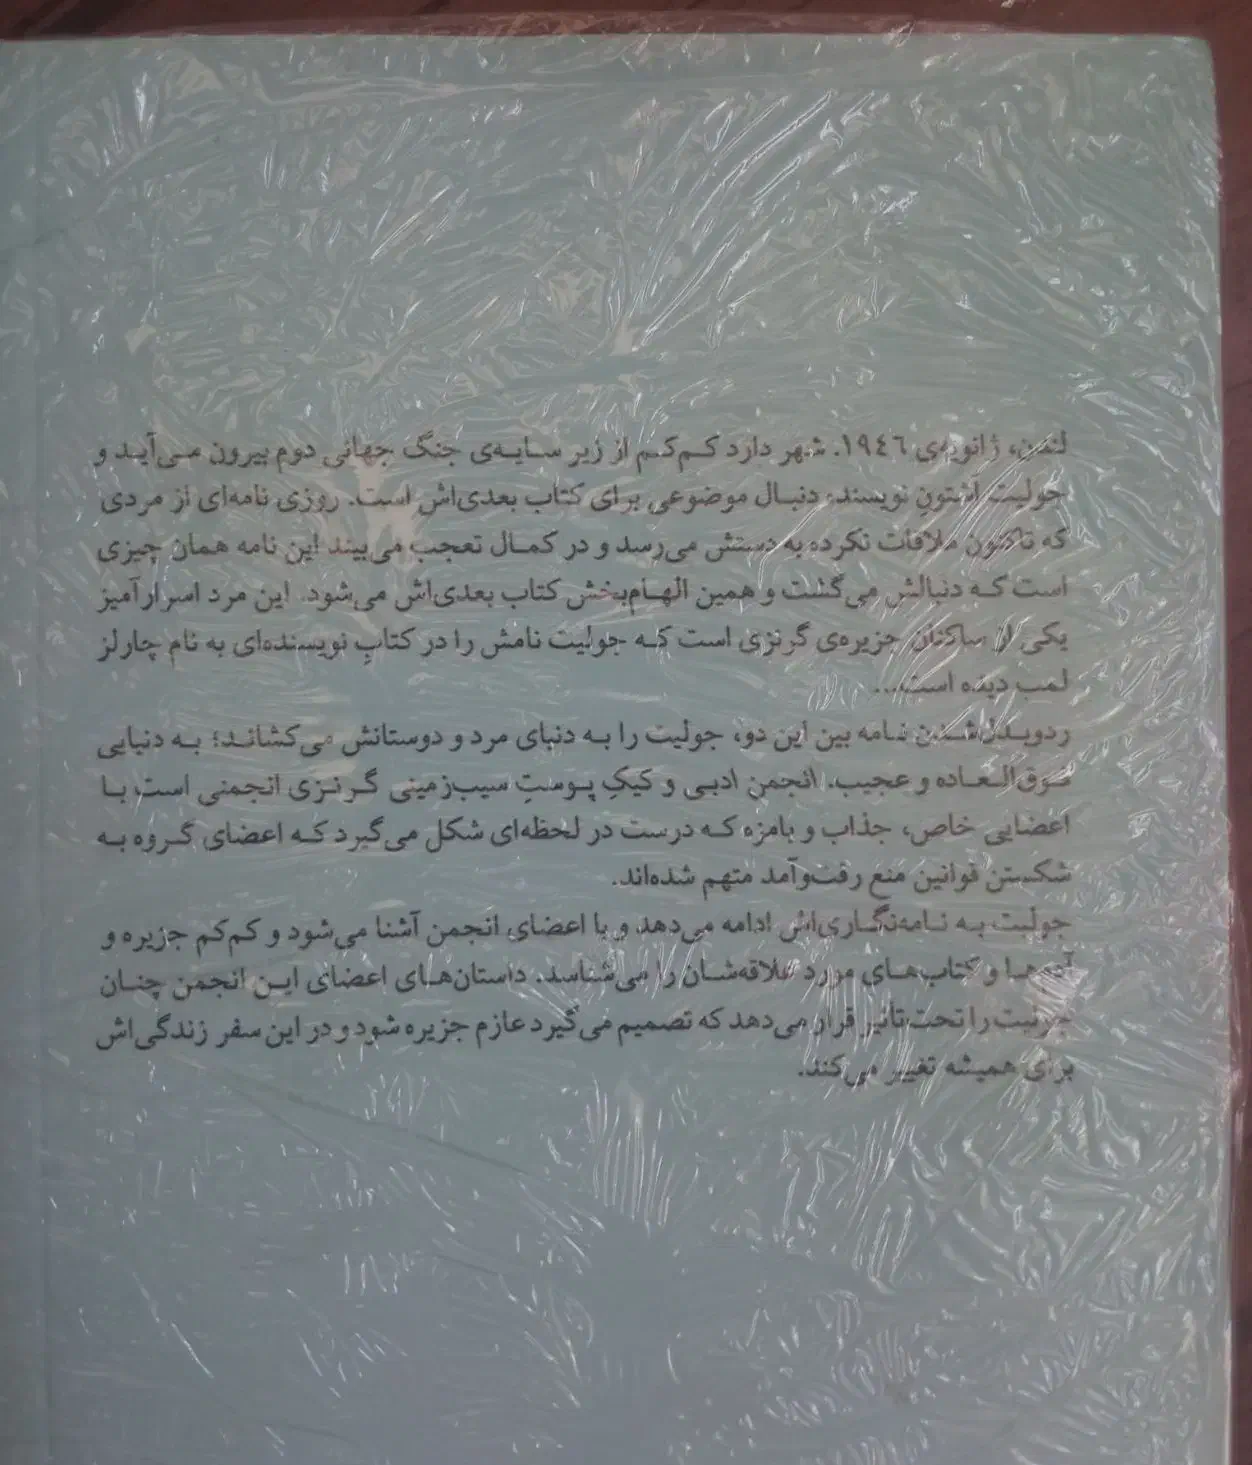 لندن، ژانویه‌ی ۱۹٤٦. شهر دارد کم‌کم از زیر سایه‌ی جنگ جهانی دوم بیرون می‌آید و
جولیت اشتونِ نویسنده دنبال موضوعی برای کتاب بعدی‌اش است. روزی نامه‌ای از مردی
که تاکنون ملاقات نکرده به دستش می‌رسد و در کمال تعجب می‌بیند این نامه همان چیزی
است که دنبالش می‌گشت و همین الهام‌بخش کتاب بعدی‌اش می‌شود. این مرد اسرارآمیز
یکی از ساکنان جزیره‌ی گرنزی است که جولیت نامش را در کتابِ نویسنده‌ای به نام چارلز
لمب دیده است...
ردوبدل‌شدن نامه بین این دو، جولیت را به دنیای مرد و دوستانش می‌کشاند؛ به دنیایی
فوق‌العاده و عجیب. انجمن ادبی و کیکِ پوستِ سیب‌زمینی گرنزی انجمنی است با
اعضایی خاص، جذاب و بامزه که درست در لحظه‌ای شکل می‌گیرد که اعضای گروه به
شکستن قوانین منع رفت‌وآمد متهم شده‌اند.
جولیت به نامه‌نگاری‌اش ادامه می‌دهد و با اعضای انجمن آشنا می‌شود و کم‌کم جزیره و
آدم‌ها و کتاب‌های مورد علاقه‌شان را می‌شناسد. داستان‌های اعضای این انجمن چنان
جولیت را تحت‌تأثیر قرار می‌دهد که تصمیم می‌گیرد عازم جزیره شود و در این سفر زندگی‌اش
برای همیشه تغییر می‌کند.